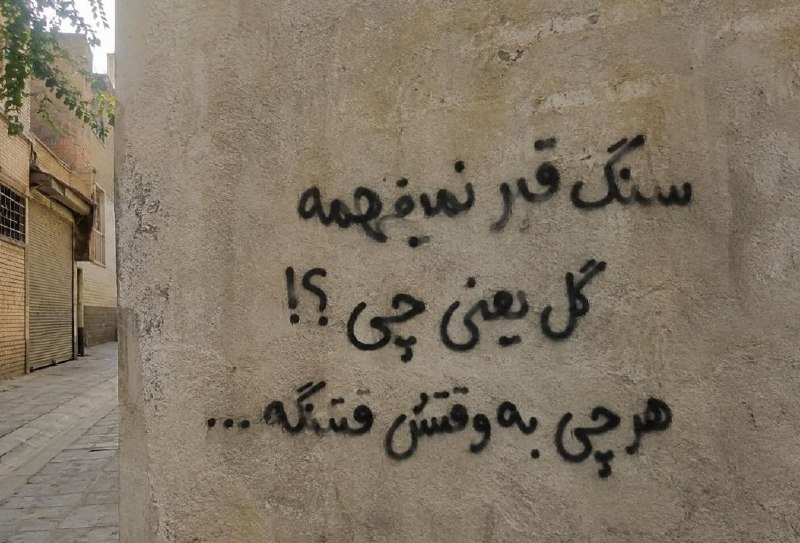 سنگ قدر نمیفهمه
گل یعنی چی ؟!
هرچی به وقتش قشنگه ...